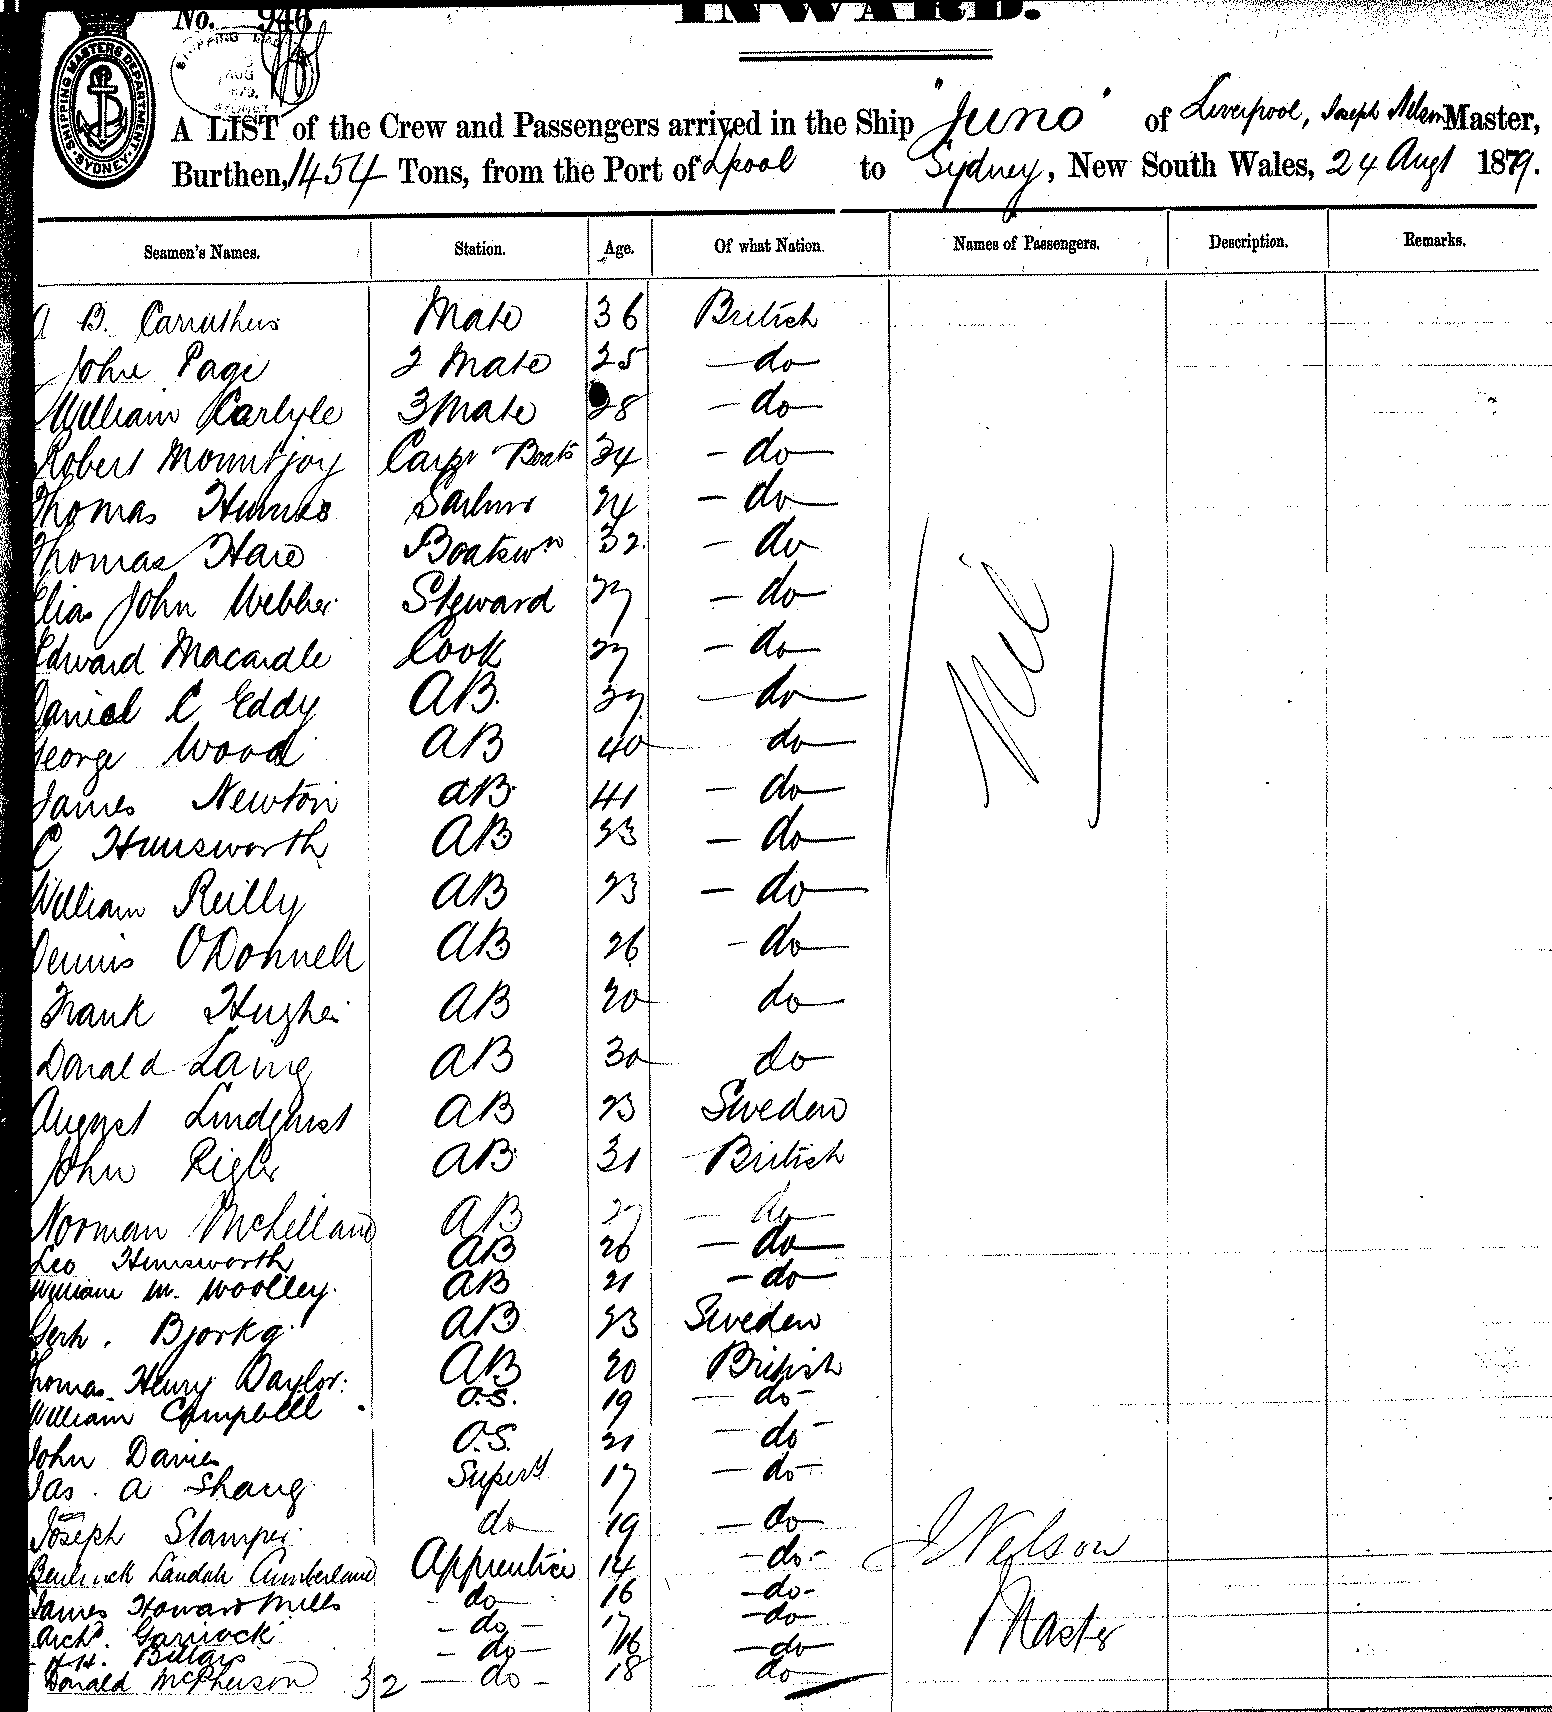 No. 946
INWARD.
SHIPPING MASTERS DEPARTMENT. SYDNEY.
A LIST of the Crew and Passengers arrived in the Ship "Juno" of Liverpool, Joseph Nelson Master,
Burthen, 1454 Tons, from the Port of Lpool to Sydney, New South Wales, 24 Augt 1879.
Seamen's Names. Station. Age. Of what Nation. Names of Passengers. Description. Remarks.
A B. Carruthers Mate 36 British
John Page 2 Mate 25 - do
William Carlyle 3 Mate 28 - do
Robert Mountjoy Carpr Boats 34 - do
Thomas 24 - do
Thomas Hare Boatswn 32 - do
Elias John Webber Steward 27 - do
Nil
Edward Macardle Cook 27 - do
Daniel C Eddy AB. 37 - do
George Wood AB 40 do
James Newton AB 41 - do
C Hunsworth AB 23 - do
William Reilly AB 23 - do
Dennis O'Donnell AB 26 - do
Frank Hughes AB 20 do
Donald Laing AB 30 do
August Lindqvist AB 23 Sweden
John Rigler AB 31 British
Norman McLelland AB 27 - do
Leo Hunsworth AB 26 - do
William M. Woolley AB 21 - do
Gerh. AB 23 Sweden
Thomas Henry Baylor AB 20 British
William Campbell O.S. 19 - do -
John Davies O.S. 21 - do -
Jas. A Shang Supery 17 - do -
Joseph Stamper do 19 - do
J Nelson
Landale Cumberland Apprentice 14 - do -
James Howard Mills - do 16 - do -
Archd. Garnock - do - 17 - do
Master
H. H. - do - 16 - do
Donald McPherson 32 - do - 18 do